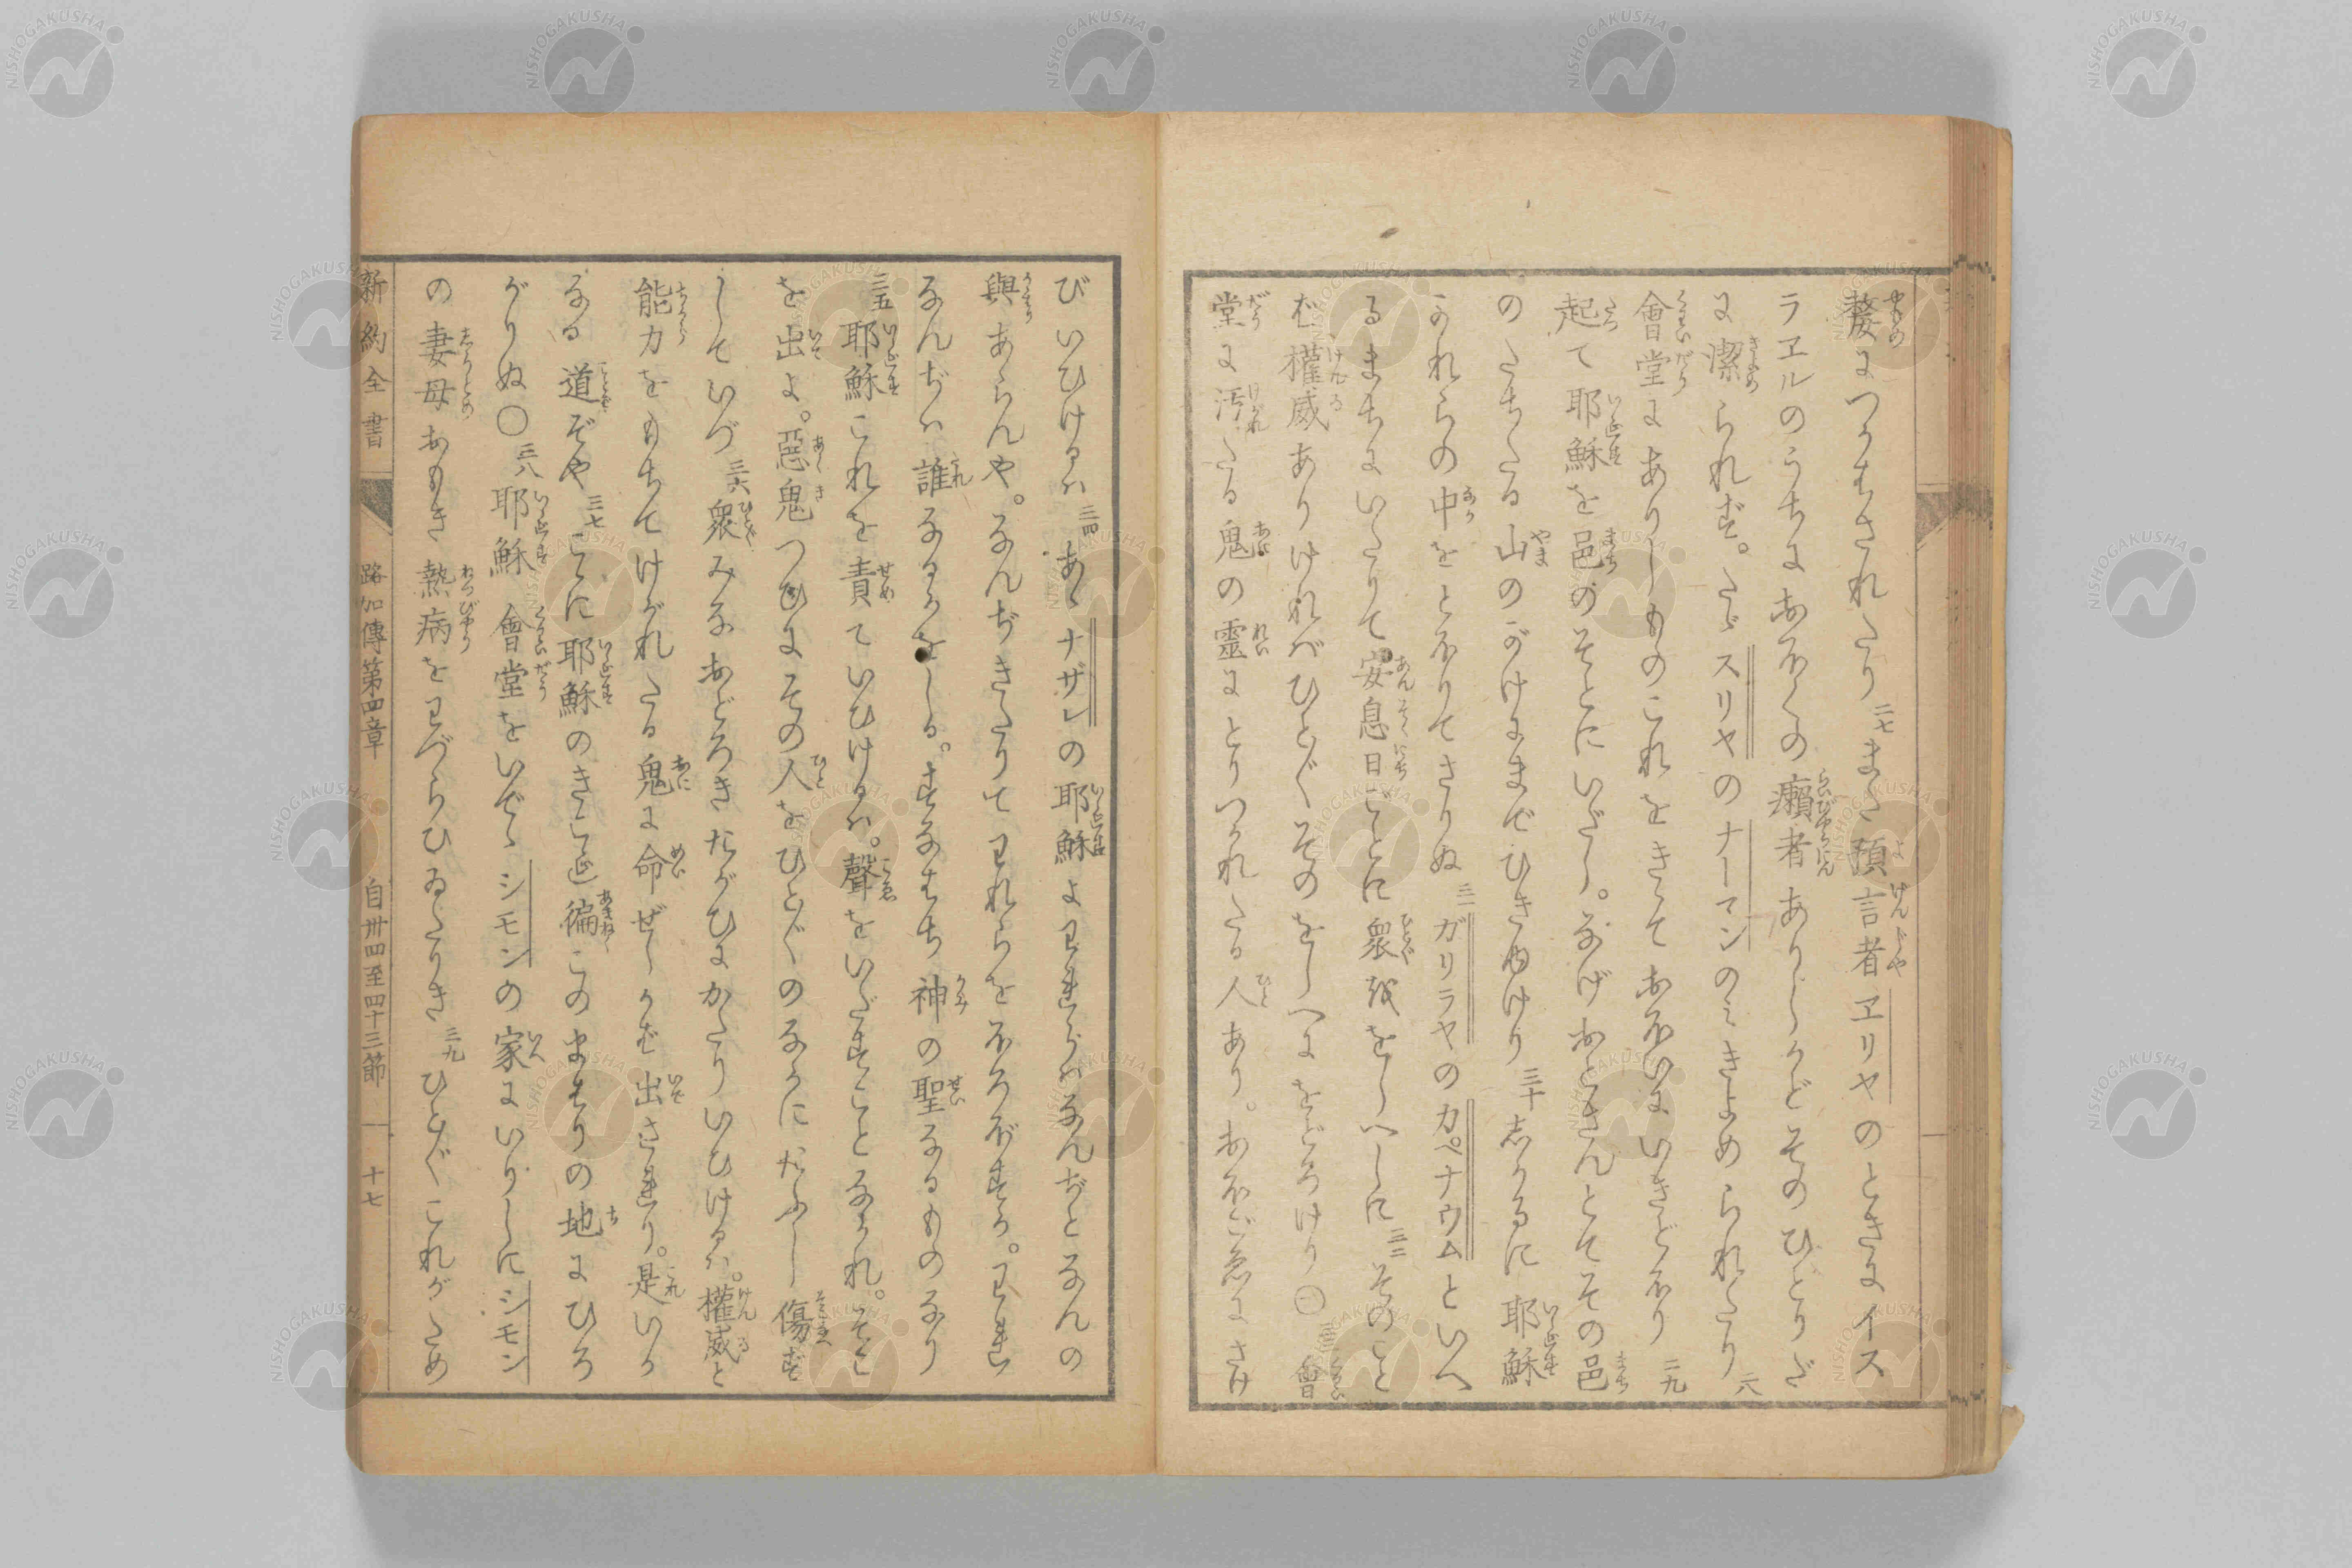 嫠につかはされたり 二七 また預言者ヱリヤのときにイス
ラヱルのうちにおほくの癩者ありしかどそのひとりだ
に潔られず。たゞスリヤのナーマンのみきよめられたり 二八
會堂にありしものこれをきゝておほいにいきどほり 二九
起て耶穌を邑のそとにいだし。なげおとさんとてその邑
のたちたる山のがけにまでひきゆけり 三十 しかるに耶穌
かれらの中をとほりてさりぬ 三一 ガリラヤのカペナウムといへ
るまちにいたりて安息日ごとに衆をゝしへしに 三二 そのこと
ば權威ありければひと〴〵そのをしへにをどろけり ○ 三三 會
堂に汚たる鬼の靈にとりつかれたる人あり。おほごゑにさけ
びいひけるハ 三四 あゝナザレの耶穌よわれらハなんぢとなんの
與あらんや。なんぢきたりてわれらをほろぼすか。われ
なんぢハ誰なるかをしる。すなはち神の聖なるものなり
三五 耶穌これを責ていひけるハ。聲をいだすことなかれ。そこ
を出よ。惡鬼つひにその人をひと〴〵のなかにたふし傷ず
していづ 三六 衆みなおどろきたがひにかたりいひけるハ。權威と
能力をもちてけがれたる鬼に命ぜしかば出されり。是いか
なる道ぞや 三七 こゝに耶穌のきこえ徧このまはりの地にひろ
がりぬ ○ 三八 耶穌會堂をいでゝシモンの家にいりしにシモン
の妻母おもき熱病をわづらひゐたりき 三九 ひと〴〵これがため
新約全書 路加傳第四章 自卅四至四十三節 十七